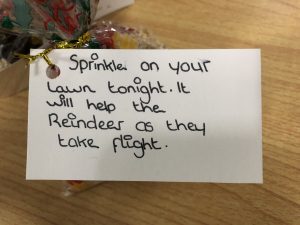 Sprinkle on your
Lawn tonight. It
will help the
Reindeer as they
take flight.